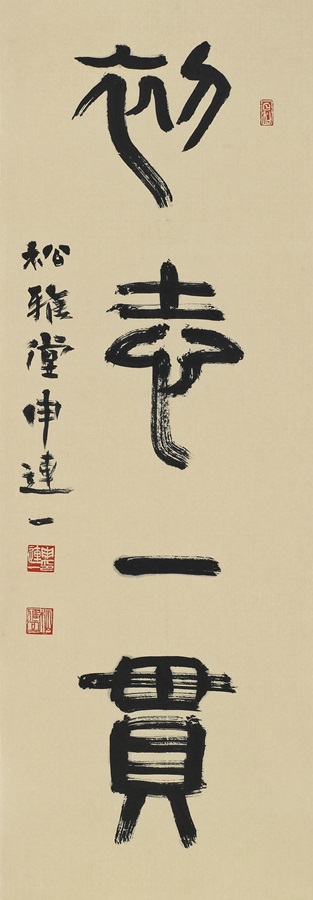 初志一貫
松雅堂申連一